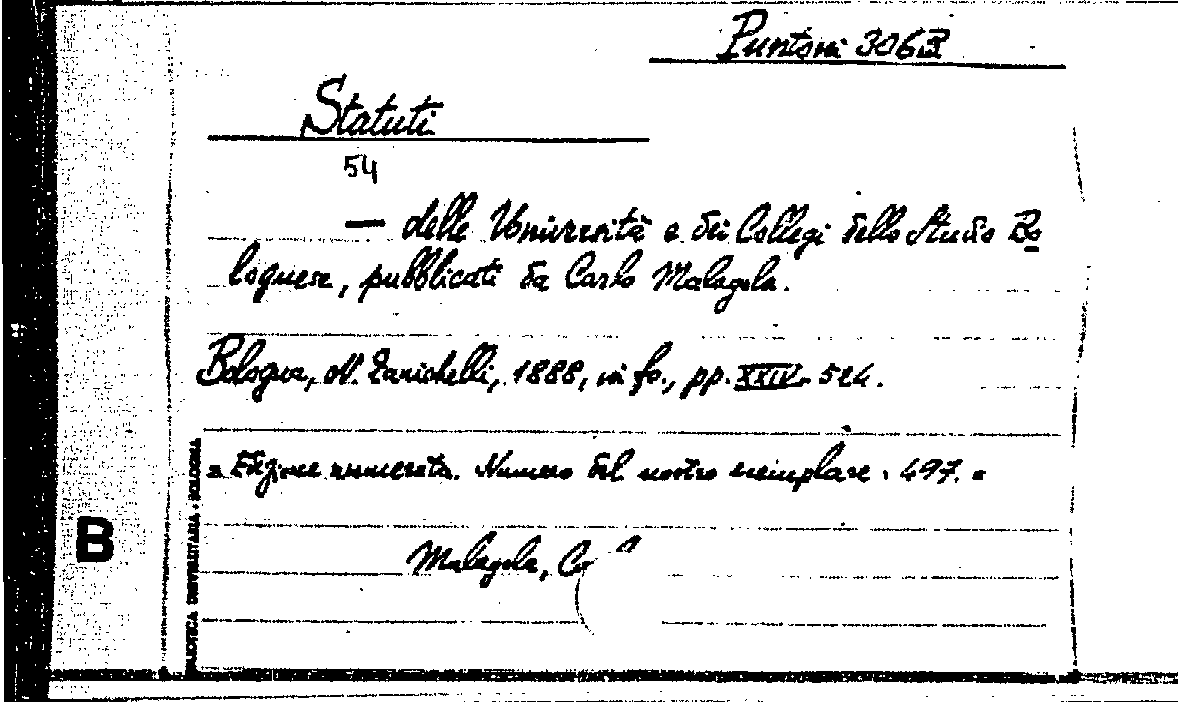 Puntoni 306B
Statuti
54
— delle Università e dei Collegi dello Studio Bo
lognese, pubblicati da Carlo Malagola.
Bologna, N. Zanichelli, 1888, in fo., pp. XXIV- 524.
= Edizione numerata. Numero del nostro esemplare: 497. =
Malagola, Ca
B
BIBLIOTECA UNIVERSITARIA - BOLOGNA